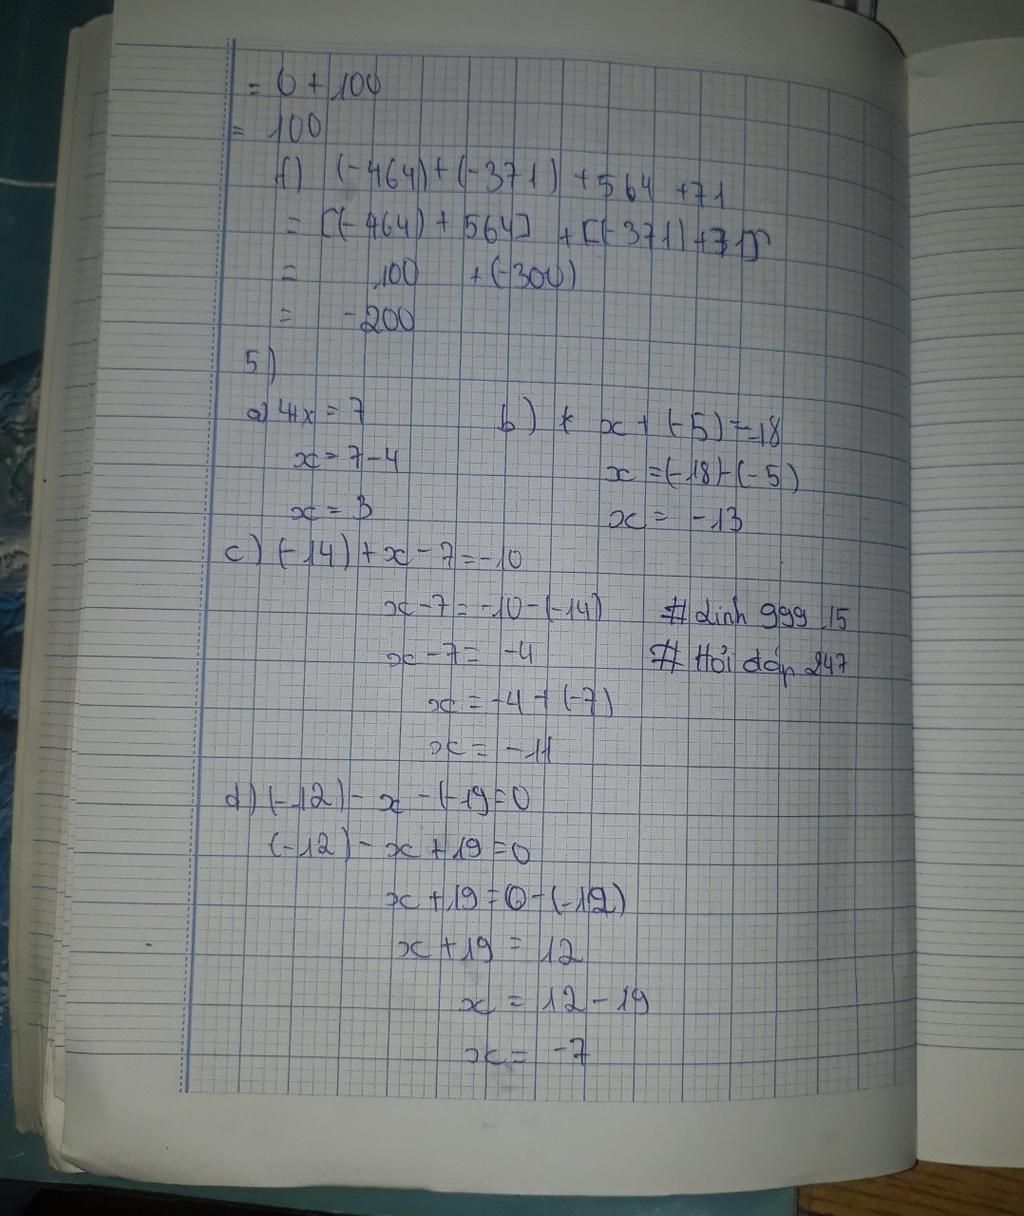 = 0 + 100
= 100
f) (-464) + (-371) + 564 + 71
= [(-464) + 564] + [(-371) + 71]
= 100 + (-300)
= -200
5)
a) 4+x = 7
x = 7-4
x = 3
b) x + (-5) = -18
x = (-18) - (-5)
x = -13
c) (-14) + x - 7 = -10
x - 7 = -10 - (-14)
x - 7 = -4
x = -4 + (-7)
x = -11
# Linh 999 15
# Hỏi đáp 247
d) (-12) - x - (-19 = 0
(-12) - x + 19 = 0
x + 19 = 0 - (-12)
x + 19 = 12
x = 12 - 19
x = -7